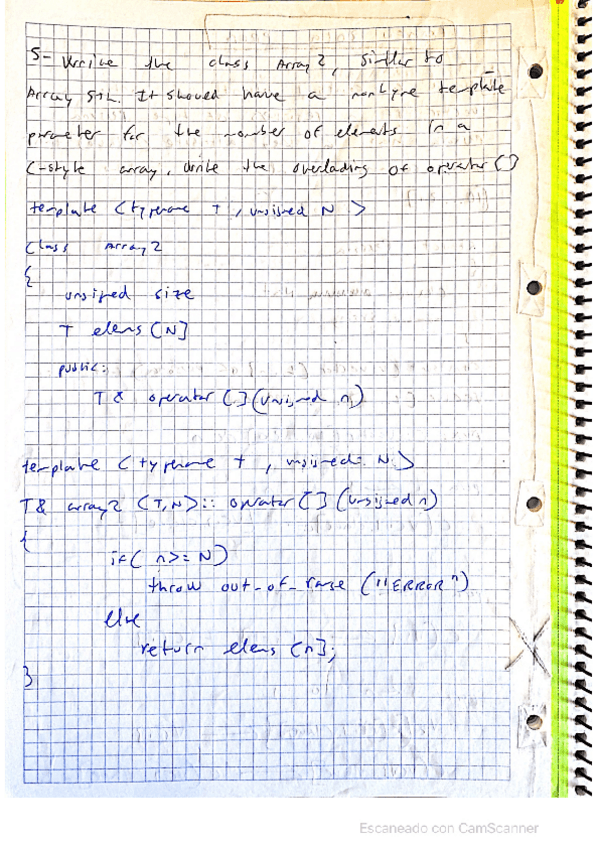 5- Write the class Array2, similar to
Array STL. It should have a nontype template
parameter for the number of elements in a
C-style array, write the overloading of operator []
template <typename T, unsigned N >
Class Array2
{
unsigned size
T elems [N]
public:
T & operator [] (unsigned n)
template < typename T, unsigned N >
T& array2 <T,N>:: operator [] (unsigned n)
{
if( n>= N)
throw out_of_range ("ERROR")
Else
return elems [n];
}
Escaneado con CamScanner